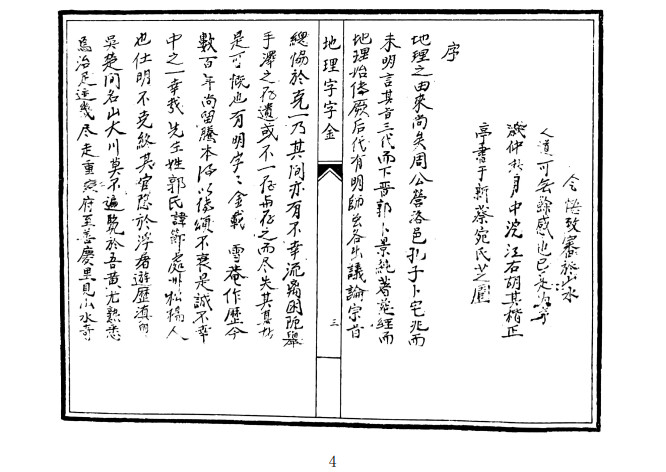 令悟致審於山水
人道可無餘感也已是為序
歲仲秋月中浣江右胡其楷正
亭書于新蔡宛氏芝園
序
地理之由來尚矣周公營洛邑孔子卜宅兆而
未明言其旨三代而下晋郭卜景純著葬經而
地理始傳厥后代有明師玄各出議論宗旨
地理字字金
三
總偽於克一乃其間亦有不幸流離困阨舉
手澤之存遺或不一存再存之而盡失其真者
是可慨也有明字字金載 雪菴作歷今
數百年尚留騰本得以傳頌不衰是誠不幸
中之一幸哉 先生姓郭氏諱節處州松楊人
也仕明不克叙其官隱於浮屠遊歷滇
吳楚間名山大川莫不遍覧於吾黄尤熟悉
焉治足迹幾盡走重 府至善慶里見山水奇
4